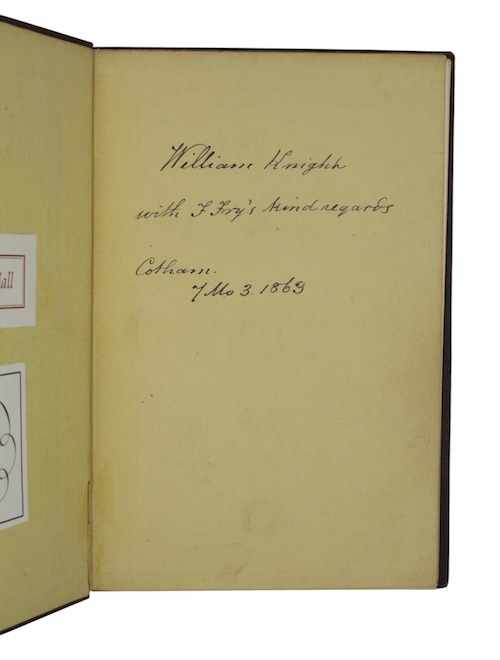 William Knight
with F Fry's kind regards
Cotham.
7 Mo 3. 1863
all